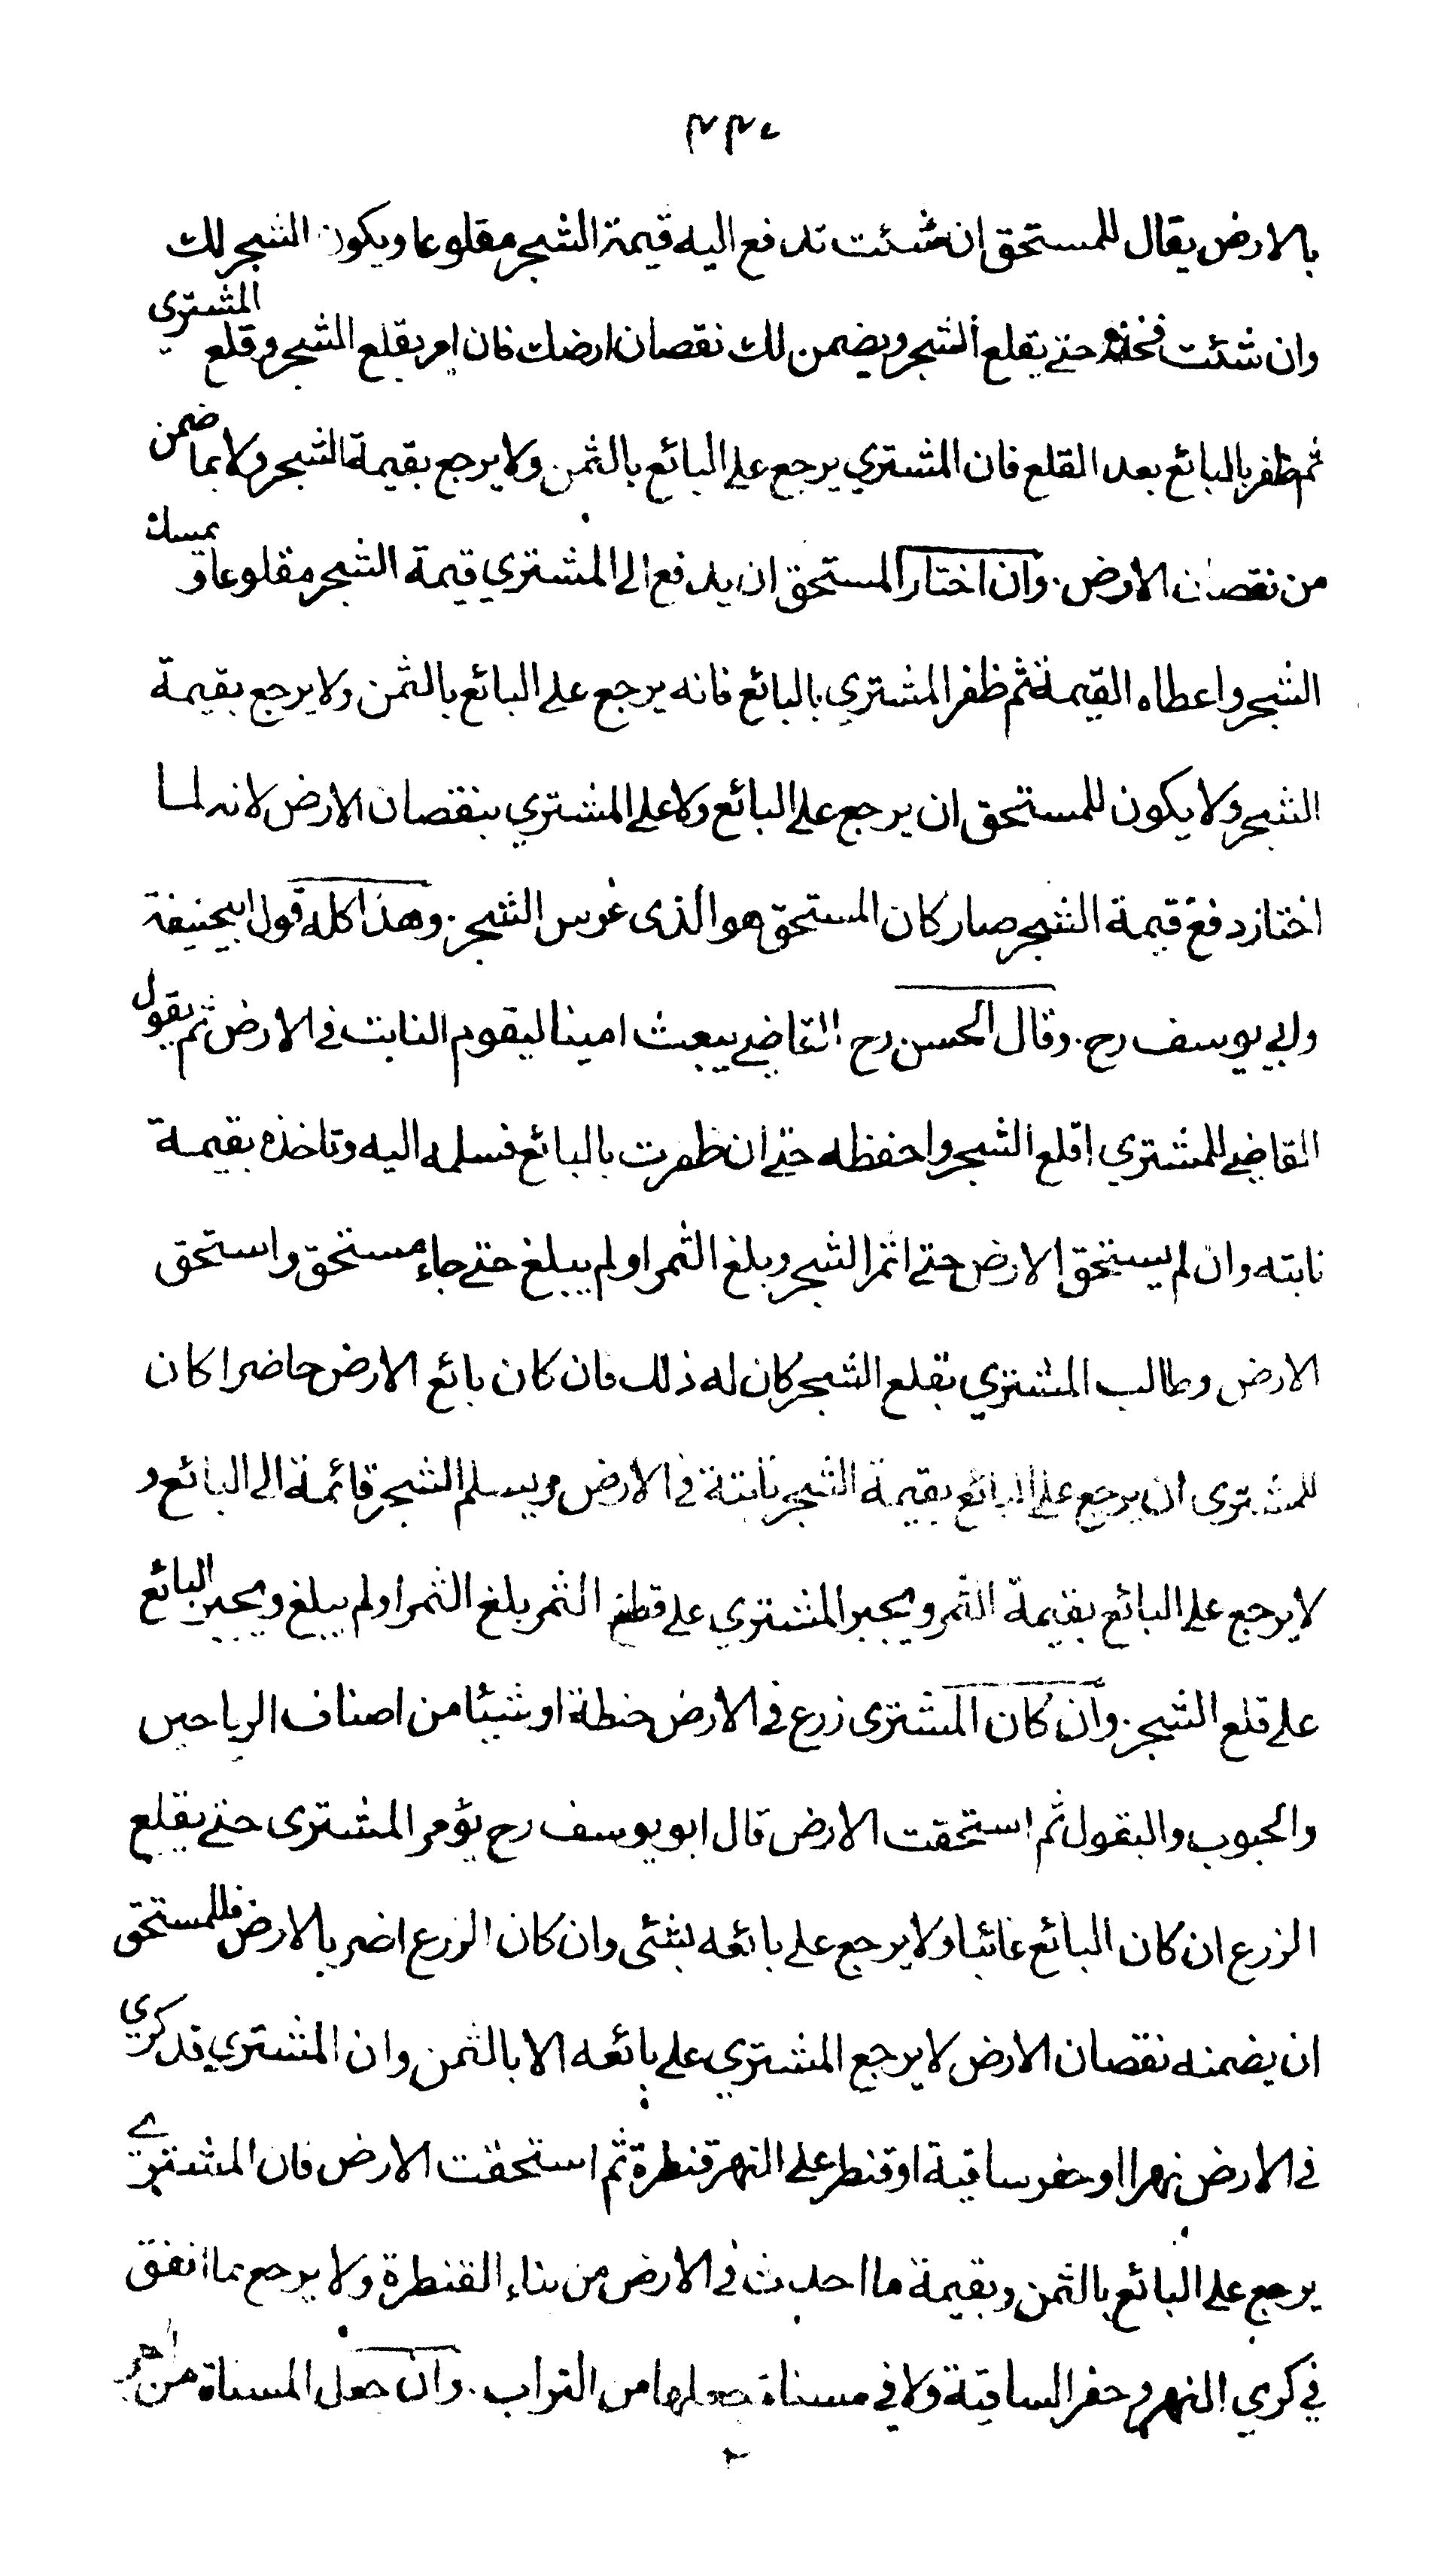 ٢٢٠
بالارض يقال للمستحق ان شئت تدفع اليه قيمة الشجر مقلوعا ويكون الشجر لك
وان شئت فخذه حتى يقلع الشجر ويضمن لك نقصان ارضك فان امر بقلع الشجر وقلع المشتري
ثم ظفر بالبائع بعد القلع فان المشتري يرجع على البائع بالثمن ولا يرجع بقيمة الشجر ولا بما ضمن
من نقصان الارض. وان اختار المستحق ان يدفع الى المشتري قيمة الشجر مقلوعا و يمسك
الشجر واعطاه القيمة ثم ظفر المشتري بالبائع فانه يرجع على البائع بالثمن ولا يرجع بقيمة
الشجر ولا يكون للمستحق ان يرجع على البائع ولا على المشتري بنقصان الارض لانه لما
اختار دفع قيمة الشجر صار كان المستحق هو الذى غرس الشجر. وهذا كله قول ابيحنيفة
وابي يوسف رح. وقال الحسن رح القاضي يبعث امينا ليقوم النابت في الارض ثم يقول
القاضي للمشتري اقلع الشجر واحفظه حتى ان ظفرت بالبائع فسلمه اليه وتاخذه بقيمة
نابته وان لم يستحق الارض حتى اثمر الشجر وبلغ الثمر او لم يبلغ حتى جاء مستحق واستحق
الارض وطالب المشتري بقلع الشجر كان له ذلك فان كان بائع الارض حاضرا كان
للمشترى ان يرجع على البائع بقيمة الشجر نابتة في الارض ويسلم الشجر قائمة الى البائع و
لا يرجع على البائع بقيمة الثمر ويجبر المشتري على قطع الثمر بلغ الثمر او لم يبلغ ويجبر البائع
على قلع الشجر. وان كان المشترى زرع في الارض حنطة او شيئا من اصناف الرياحين
والحبوب والبقول ثم استحقت الارض قال ابو يوسف رح يؤمر المشترى حتى يقلع
الزرع ان كان البائع غائبا ولا يرجع على بائعه بشئى وان كان الزرع اضر بالارض فللمستحق
ان يضمنه نقصان الارض لا يرجع المشتري على بائعه الا بالثمن وان المشتري قد كري
في الارض نهرا او حفر ساقية او قنطر على النهر قنطرة ثم استحقت الارض فان المشتري
يرجع على البائع بالثمن وبقيمة ما احدث في الارض من بناء القنطرة ولا يرجع بما انفق
في كري النهر وحفر الساقية ولا في مسناة جعلها من التراب. وان جعل المسناة من